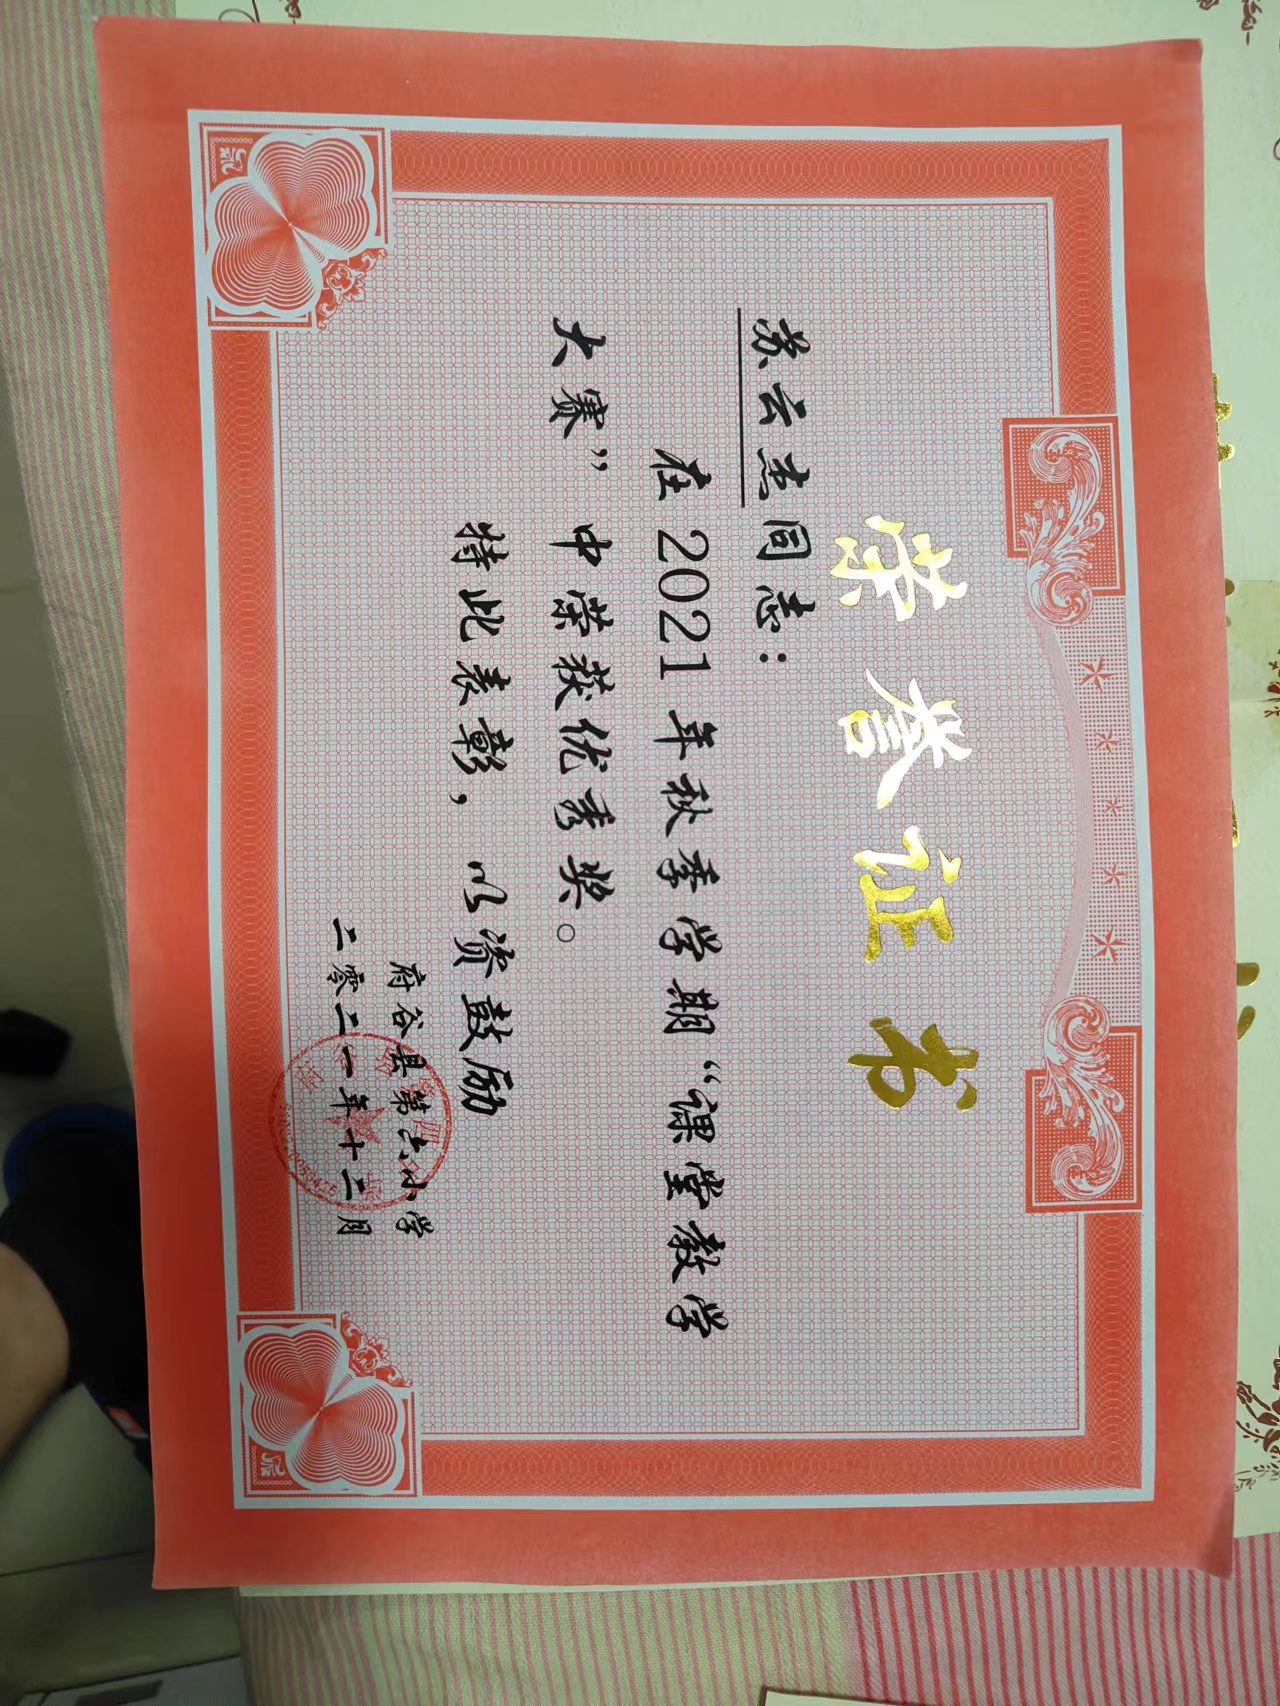 荣誉证书
苏云杰同志：
在2021年秋季学期“课堂教学
大赛”中荣获优秀奖。
特此表彰，以资鼓励
府谷县第六小学
二零二一年十二月